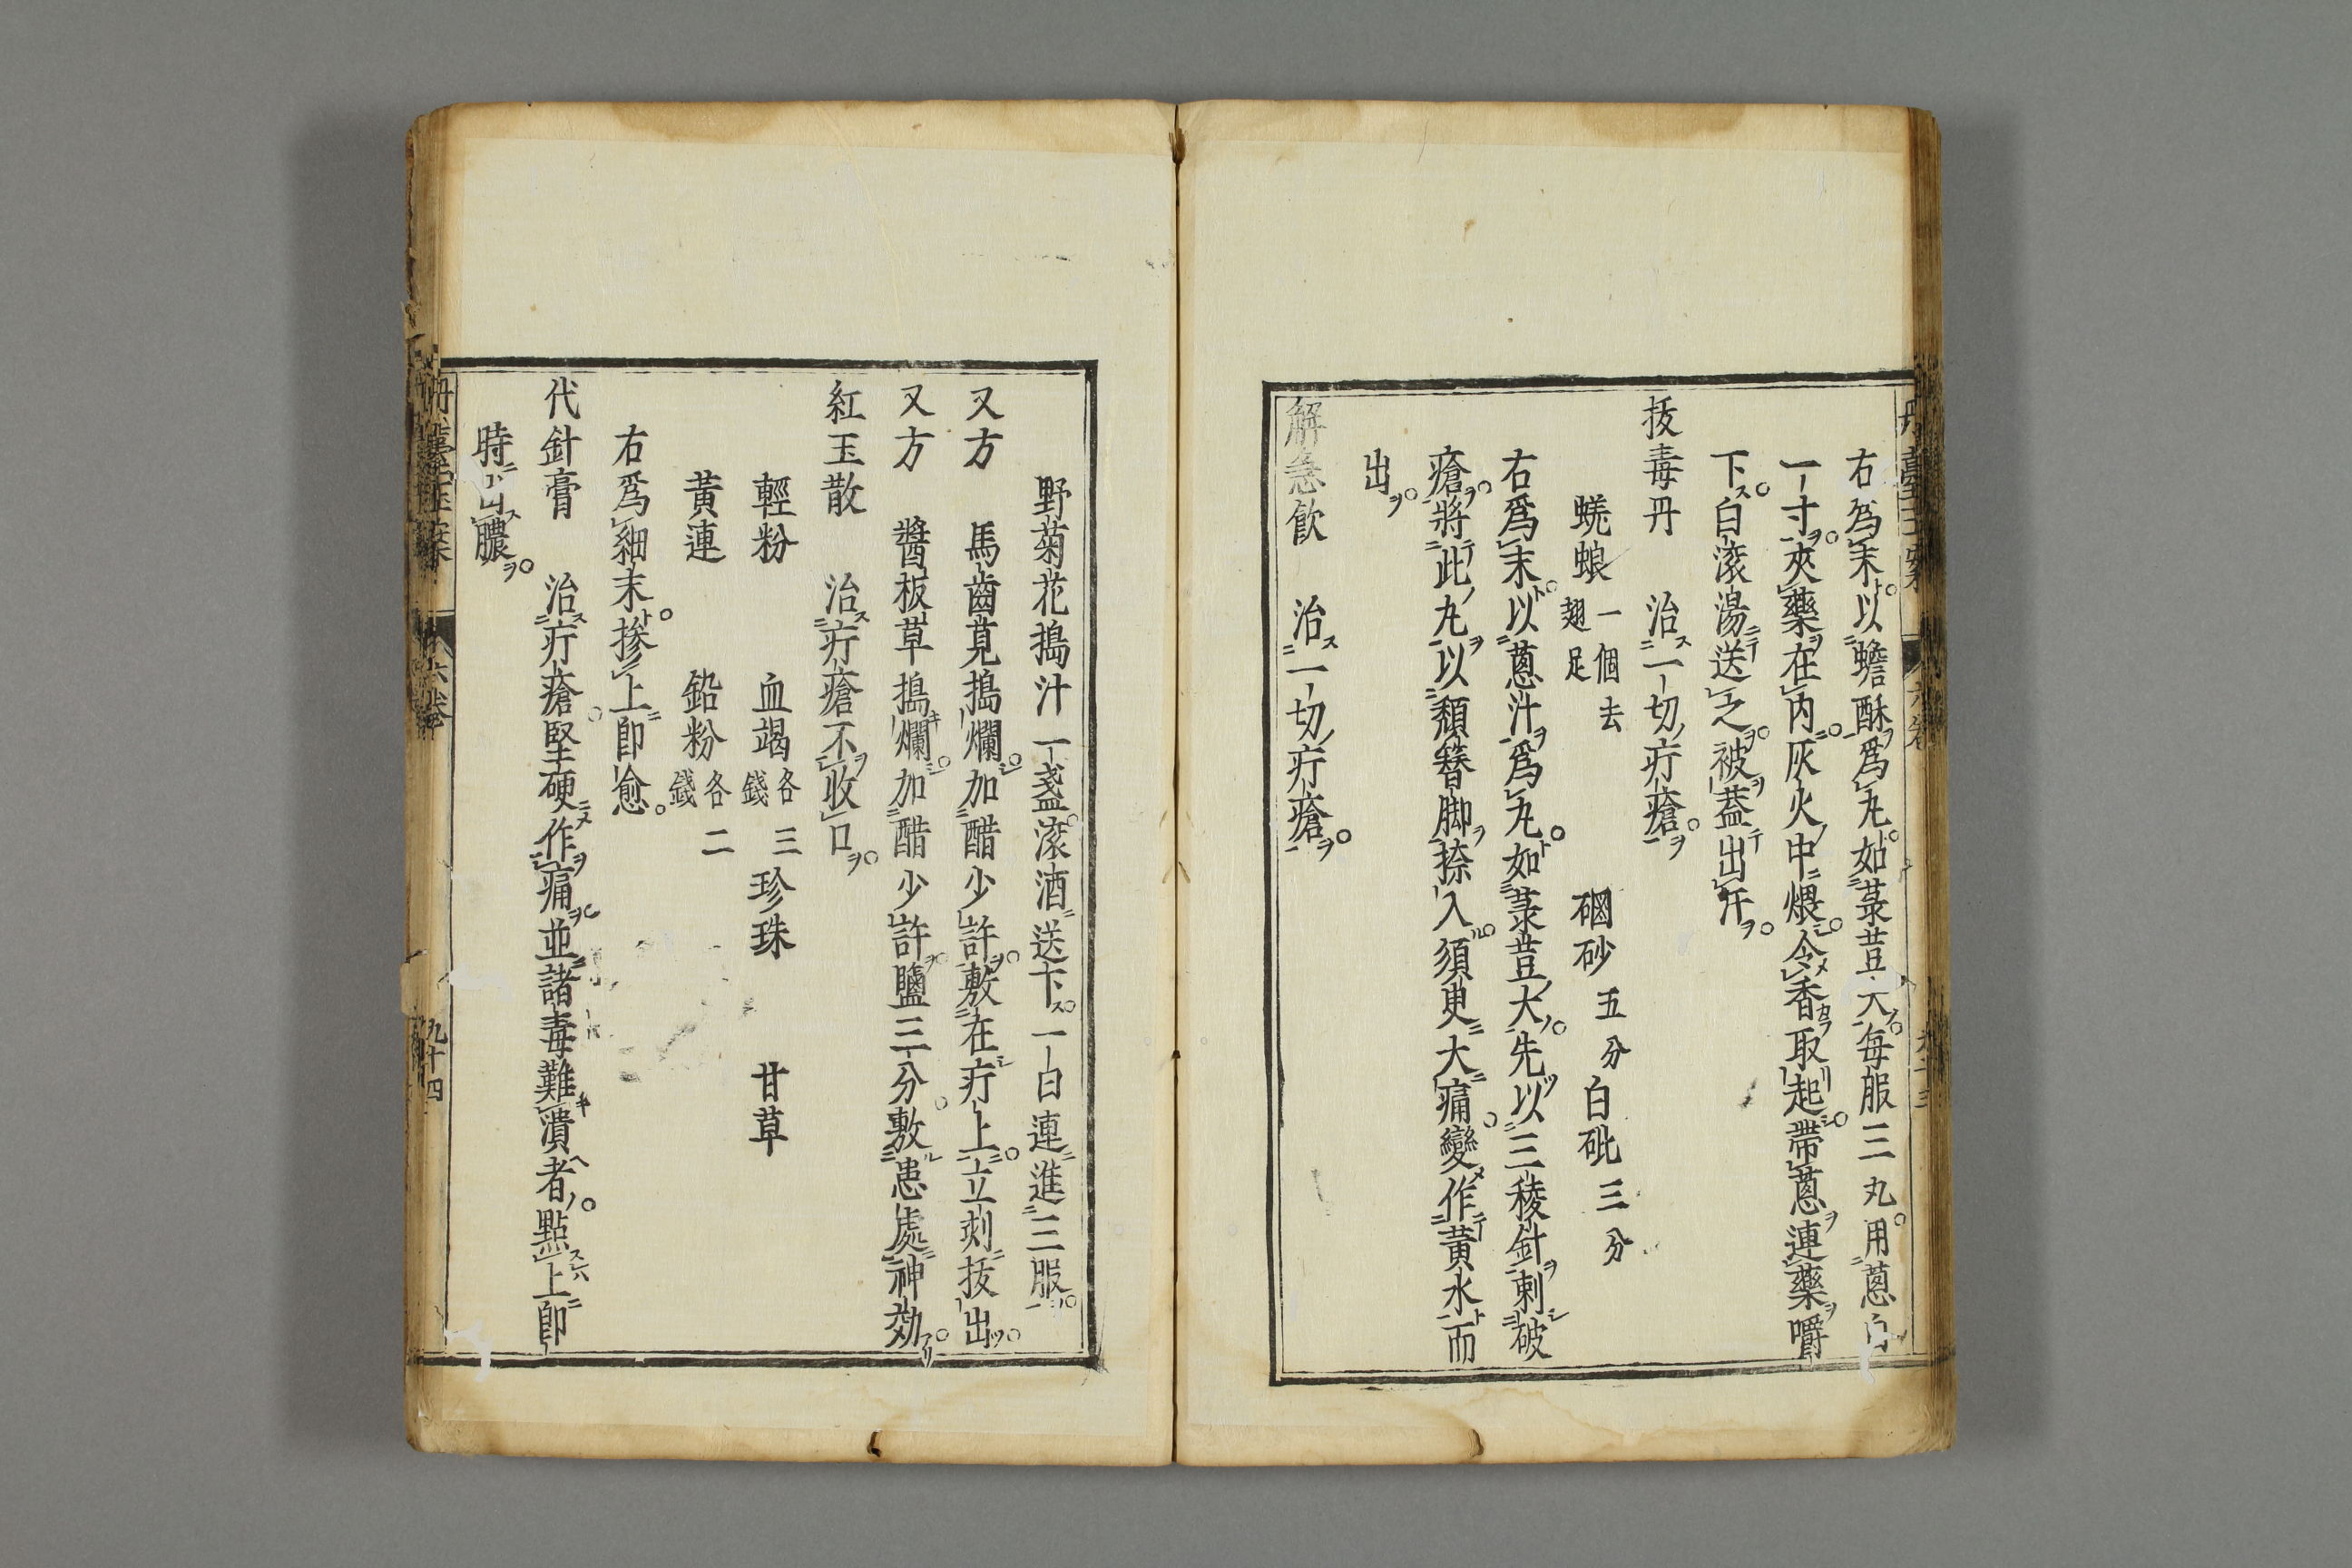 右爲末以蟾酥爲丸如菉荳大每服三丸用葱白
一寸夾藥在内灰火中煨令香取起帶葱連藥嚼
下白滾湯送之被蓋出汗
拔毒丹　治一切疔瘡
蜣螂一個去翅足　硇砂五分　白砒三分
右爲末以葱汁爲丸如菉荳大先以三稜針刺破
瘡將此丸以頽簪脚捺入須臾大痛變作黃水而
出
解急飲　治一切疔瘡
野菊花搗汁一盞滾酒送下一日連進三服
又方　馬齒莧搗爛加醋少許敷在疔上立刻拔出
又方　醬板草搗爛加醋少許鹽三分敷患處神効
紅玉散　治疔瘡不收口
輕粉　血竭各三錢　珍珠　甘草
黃連　鉛粉各二錢
右爲細末摻上卽愈
代針膏　治疔瘡堅硬作痛並諸毒難潰者點上卽
時出膿
九十四